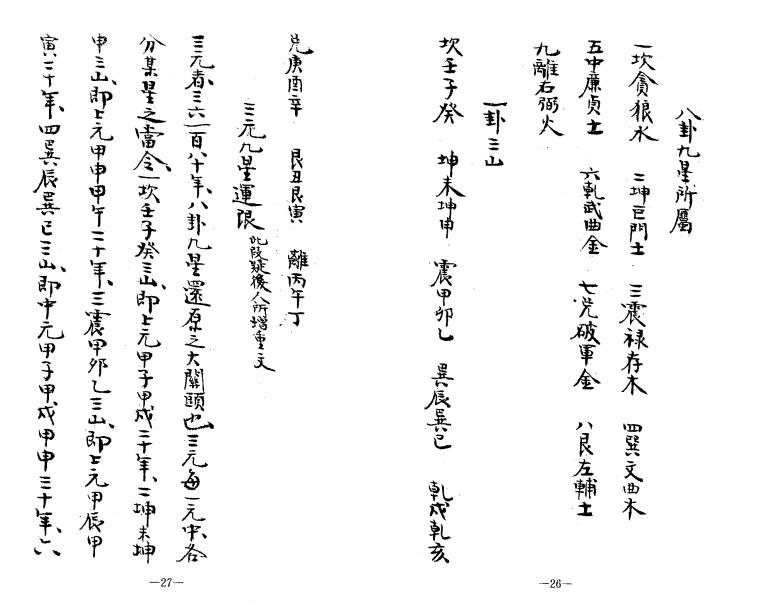 八卦九星所屬
一坎貪狼水　二坤巨門土　三震禄存木　四巽文曲木
五中廉貞土　六乹武曲金　七兑破軍金　八艮左輔土
九離右弼火
一卦三山
坎壬子癸　坤未坤申　震甲卯乙　巽辰巽巳　乹戍乹亥
—26—
兑庚酉辛　艮丑艮寅　離丙午丁
三元九星運限 此段疑後人所增重文
三元者、三六一百八十年、八卦九星還原之大關頭也、三元每一元中、各
分某星之當令、一坎壬子癸三山、即上元甲子甲戍二十年、二坤未坤
申三山、即上元甲申甲午二十年、三震甲卯乙三山、即上元甲辰甲
寅二十年、四巽辰巽巳三山、即中元甲子甲戍甲申三十年、六
—27—